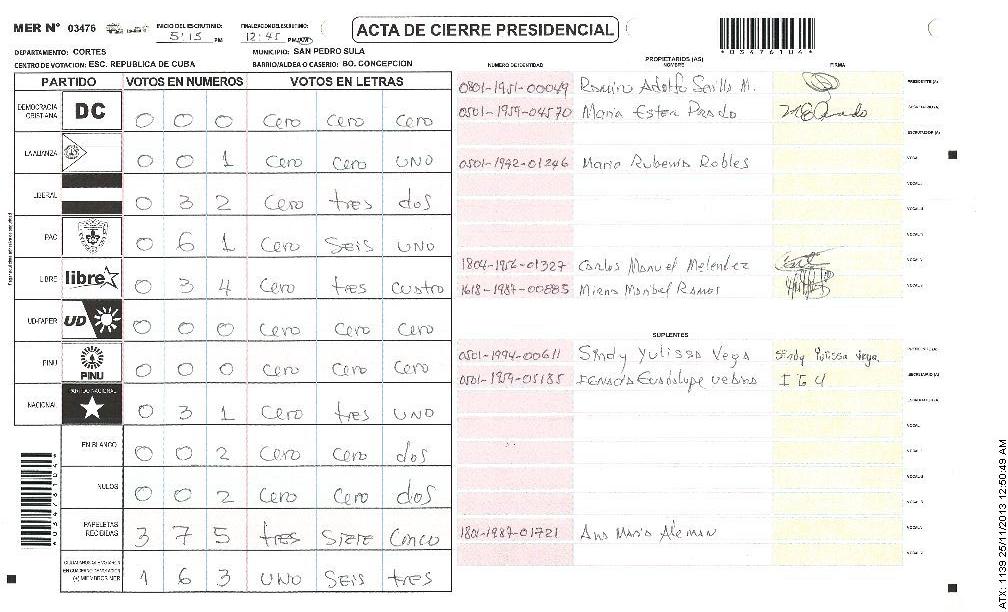 MER Nº 03476
INICIO DEL ESCRUTINIO: 5:15 PM
FINALIZACION ESCRUTINIO: 12:45 PM/AM
ACTA DE CIERRE PRESIDENCIAL
DEPARTAMENTO: CORTES
MUNICIPIO: SAN PEDRO SULA
CENTRO DE VOTACION: ESC. REPUBLICA DE CUBA
BARRIO/ALDEA O CASERIO: BO. CONCEPCION
PARTIDO VOTOS EN NUMEROS VOTOS EN LETRAS
DEMOCRACIA CRISTIANA DC 0 0 0 Cero Cero Cero
LA ALIANZA 0 0 1 Cero Cero UNO
LIBERAL 0 3 2 Cero tres dos
PAC 0 6 1 Cero SEIS UNO
LIBRE libre 0 3 4 Cero tres cuatro
UD-FAPER UD 0 0 0 Cero Cero Cero
PINU PINU 0 0 0 Cero Cero Cero
NACIONAL PARTIDO NACIONAL 0 3 1 Cero tres UNO
EN BLANCO 0 0 2 Cero Cero dos
NULOS 0 0 2 Cero Cero dos
PAPELETAS RECIBIDAS 3 7 5 tres Siete Cinco
(+) MIEMBROS MER 1 6 3 UNO SEIS tres
PROPIETARIOS (AS)
NUMERO DE IDENTIDAD NOMBRE FIRMA
0801-1951-00049 Ramiro Adolfo Sevilla M. PRESIDENTE (A)
0501-1959-04570 Maria Ester Prado SECRETARIO (A)
ESCRUTADOR (A)
0501-1942-01246 Maria Rubenia Robles
1804-1956-01327 Carlos Manuel Melendez
1618-1987-00885 Mirna Maribel Ramos
SUPLENTES
0501-1994-00611 Sindy Yulissa Vega Sindy Yulissa Vega PRESIDENTE (A)
0501-1959-05185 Guadalupe I G U SECRETARIO (A)
1801-1987-01721 Ana Maria Aleman
03476104
ATX: 1139 25/11/2013 12:50:49 AM